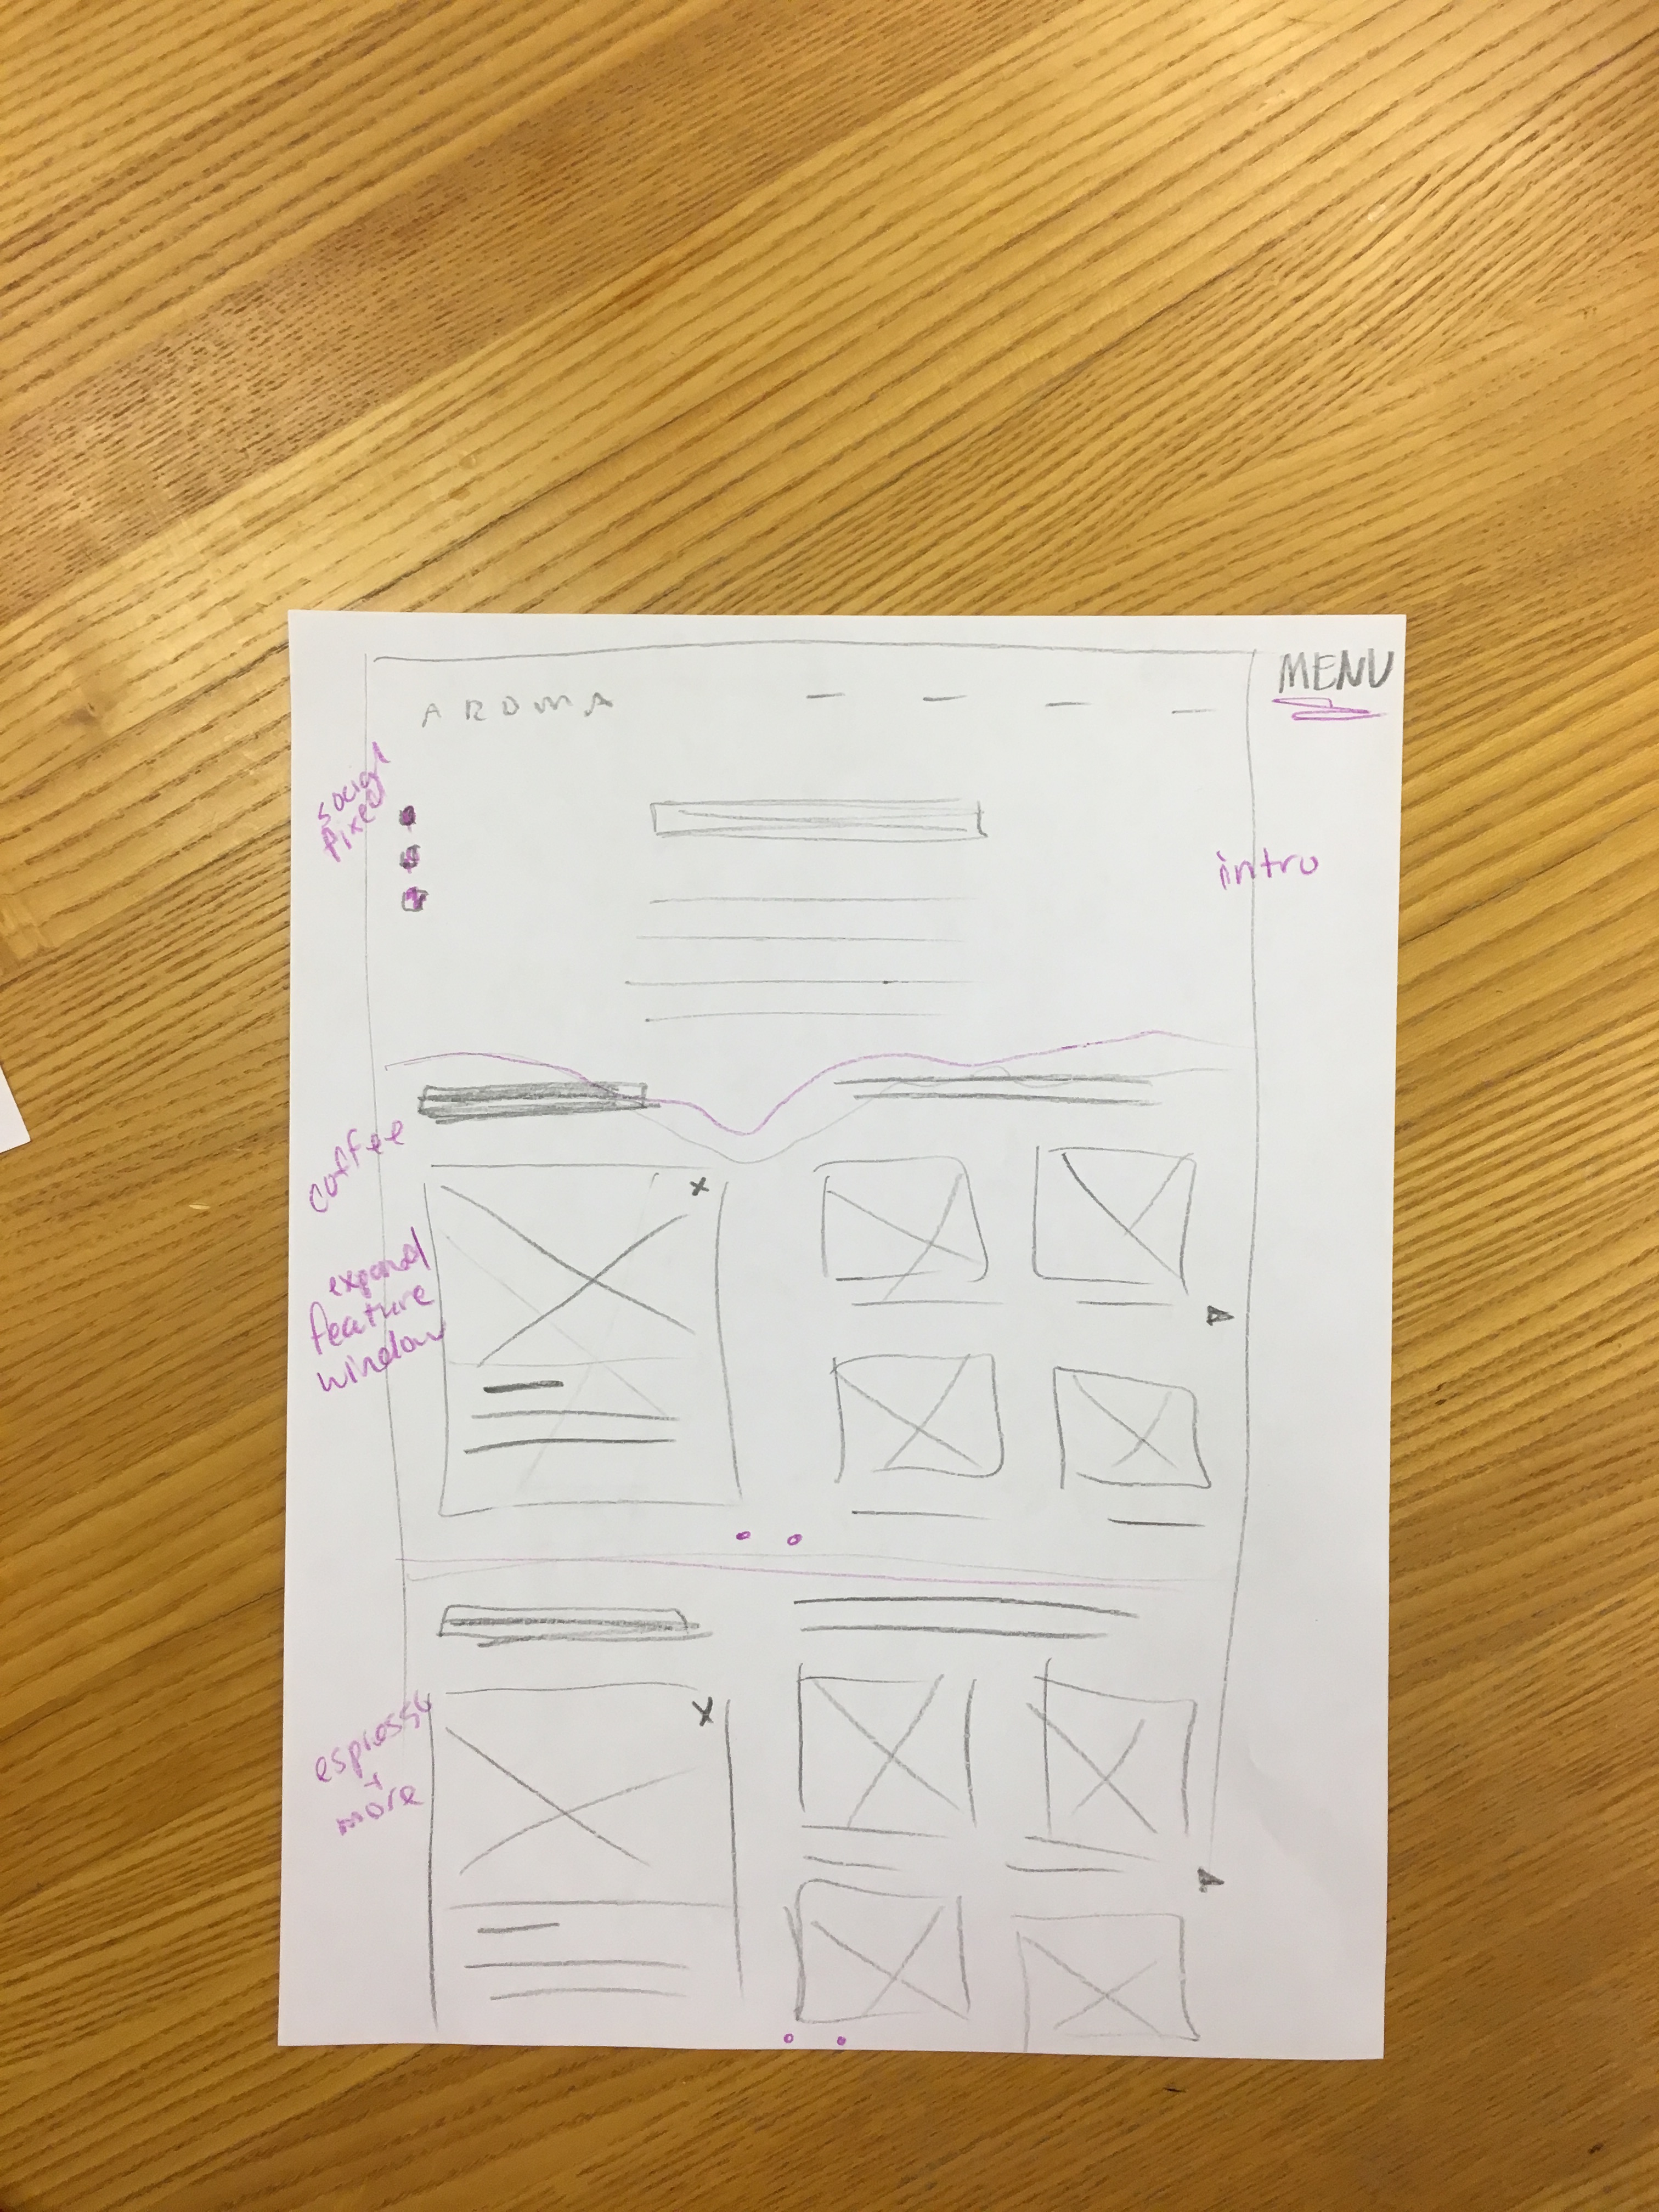 MENU
AROMA
social
fixed
intro
coffee
expand
feature
window
espresso
+
more